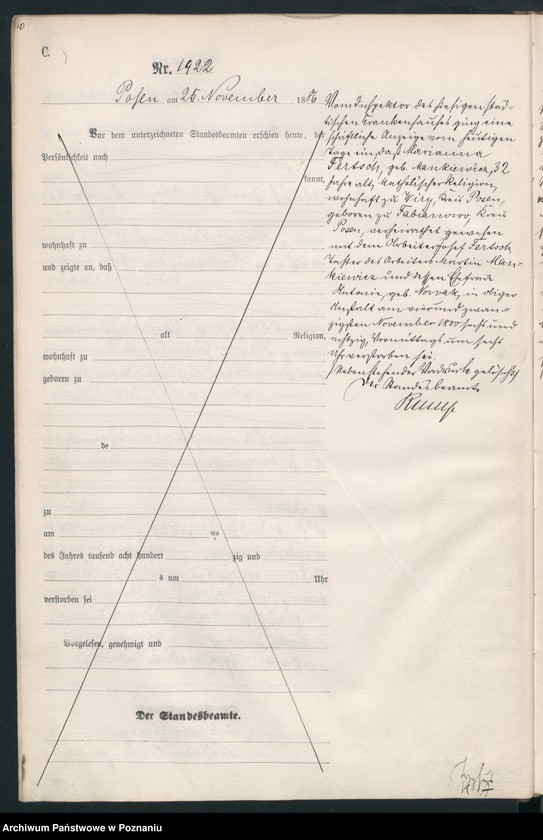 C.
Nr. 1922
Posen am 25. November 1886
Vor dem unterzeichneten Standesbeamten erschien heute, der
Persönlichkeit nach
kannt,
wohnhaft zu
und zeigte an, daß
alt Religion,
wohnhaft zu
geboren zu
de
zu
am ten
des Jahres tausend acht hundert zig und
s um Uhr
verstorben sei
Vorgelesen, genehmigt und
Der Standesbeamte.
Vom Inspektor des hiesigen städ-
tischen Krankenhauses ging eine
schriftliche Anzeige vom heutigen
Tage ein, daß Marianna
Fertsch, geb. Mankiewicz, 32
Jahre alt, katholischer Religion,
wohnhaft zu Wiry, Kreis Posen,
geboren zu Fabianowo, Kreis
Posen, verheirathet gewesen
mit dem Arbeiter Josef Fertsch,
Tochter des Arbeiters Martin Man-
kiewicz und dessen Ehefrau
Antonie, geb. Nowak, in obiger
Anstalt am vier und zwan-
zigsten November 1800 sechs und
achtzig, Vormittags um sechs
Uhr verstorben sei.
Nebenstehender Vordruck gelöscht
Der Standesbeamte
Archiwum Państwowe w Poznaniu